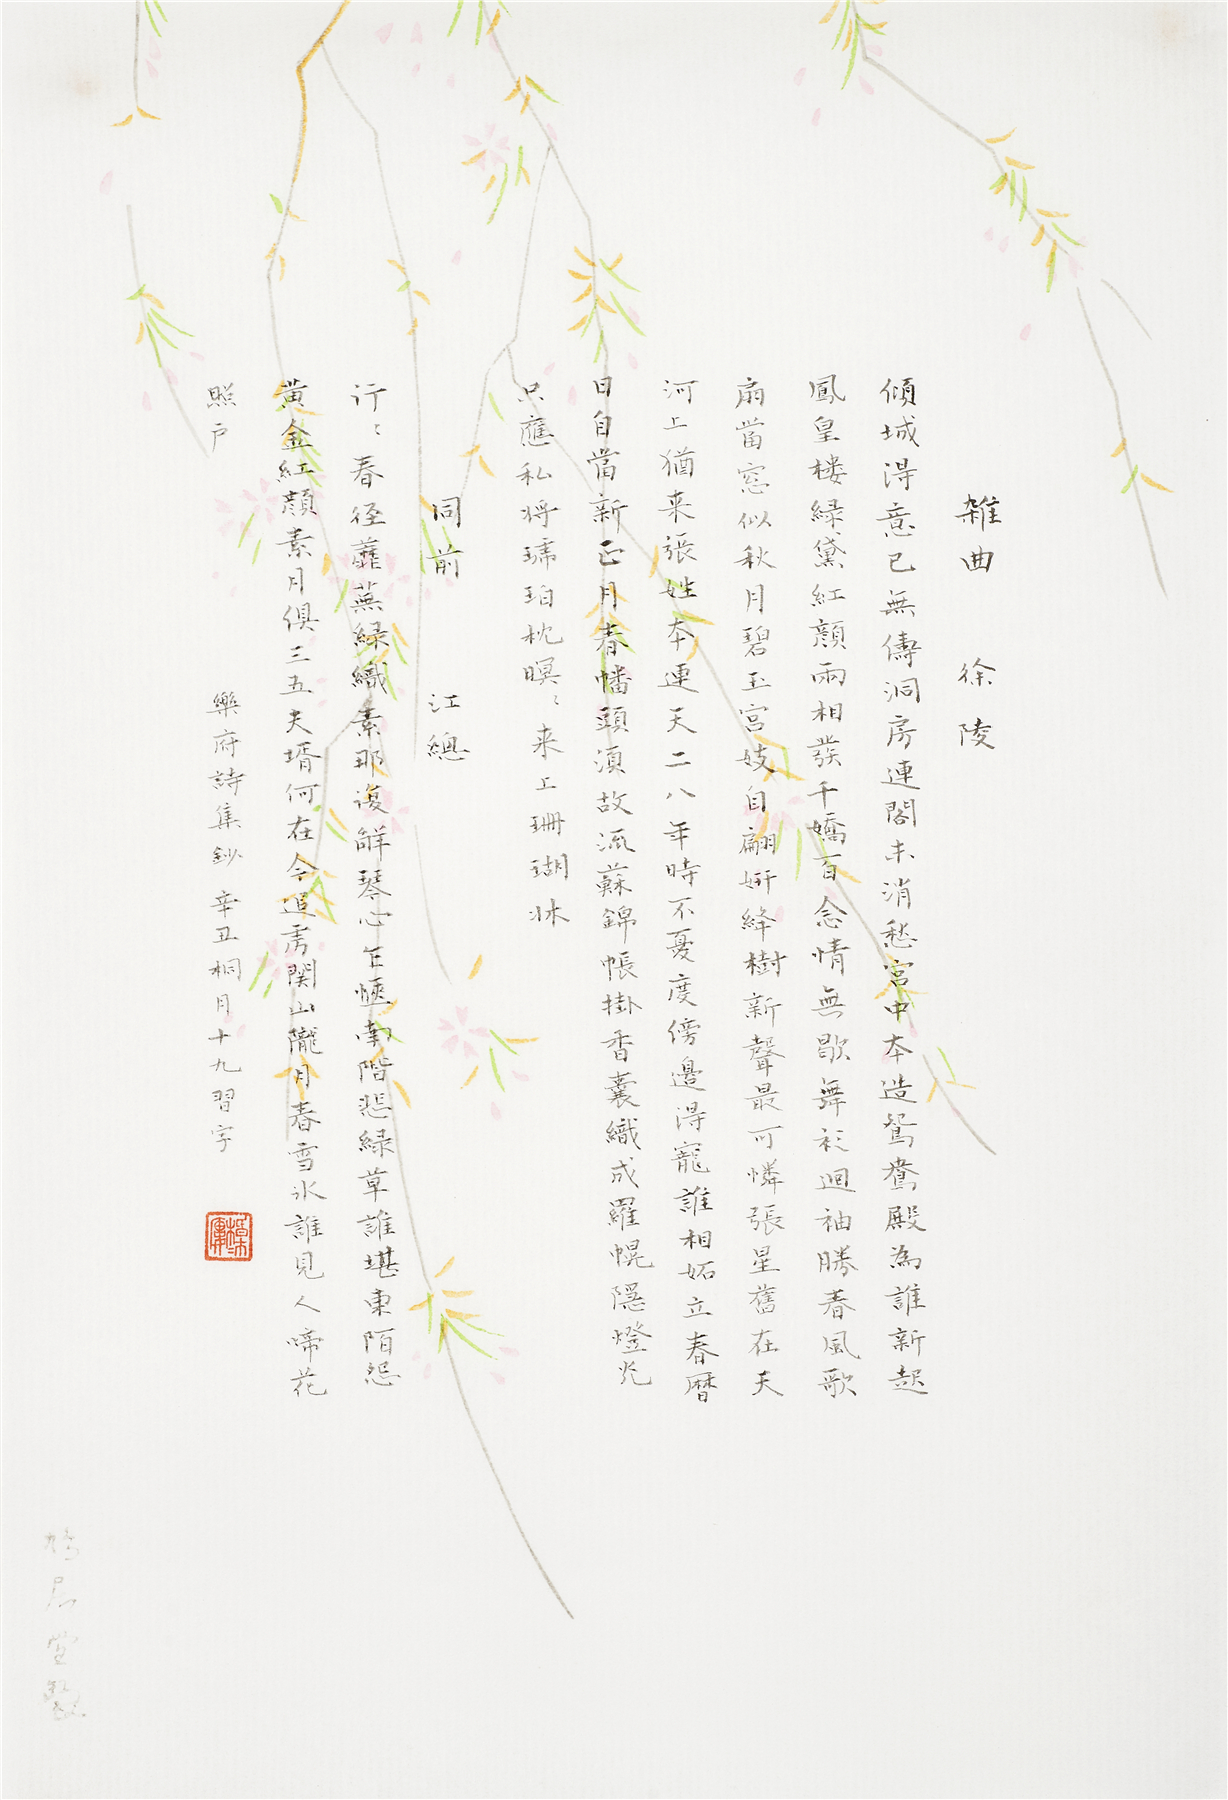 雜曲　徐陵
傾城得意已無儔洞房連閣未消愁宮中本造鴛鴦殿為誰新起
鳳皇樓緑黛紅顏兩相發千嬌百念情無歇舞衫迴袖勝春風歌
扇當窓似秋月碧玉宮妓自翩妍絳樹新聲最可憐張星舊在天
河上猶来張姓本連天二八年時不憂度傍邊得寵誰相妬立春曆
日自當新正月春幡頭湏故流蘇錦帳掛香囊織成羅幌隱燈光
只應私将琥珀枕暝〻来上珊瑚牀
同前　江總
行〻春徑蘼蕪緑織素那復解琴心乍愜南階悲緑草誰堪東陌怨
黄金紅顏素月俱三五夫壻何在今追虜関山隴月春雪冰誰見人啼花
照户
樂府詩集鈔 辛丑桐月十九習字
鳩居堂製